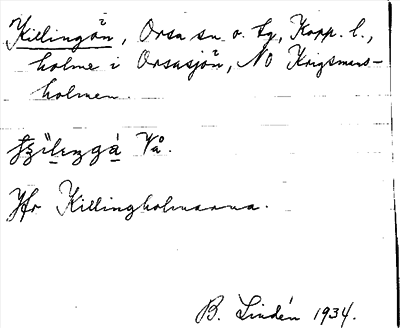 Killingön, Orsa sn. o. tg, Kopp. l.,
holme i Orsasjön, NO Krigsmans-
holmen.
Vå.
Jfr Killingholmarna.
B. Lindén 1934.